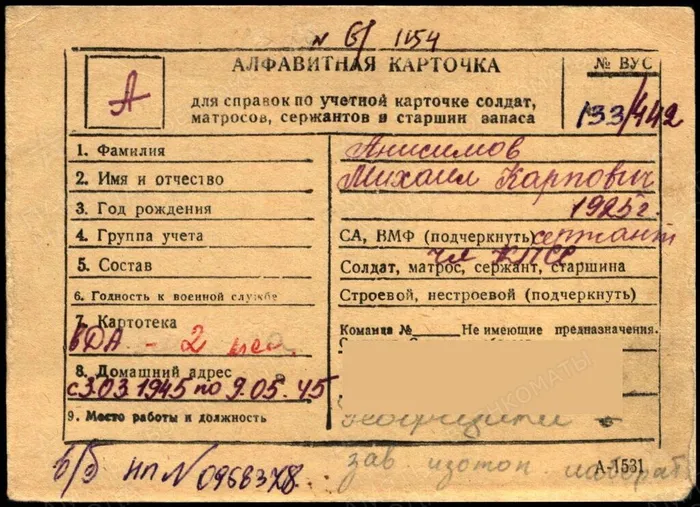 N б/ 1154
АЛФАВИТНАЯ КАРТОЧКА
№ ВУС
А
для справок по учетной карточке солдат,
матросов, сержантов и старшин запаса
133/442
1. Фамилия
Анисимов
2. Имя и отчество
Михаил Карпович
3. Год рождения
1925 г
4. Группа учета
СА, ВМФ (подчеркнуть) сержант
чл КПСС
5. Состав
Солдат, матрос, сержант, старшина
6. Годность к военной службе
Строевой, нестроевой (подчеркнуть)
7. Картотека
Команда № Не имеющие предназначения.
ВДА - 2 мес.
8. Домашний адрес
с 3.03.1945 по 9.05.45
9. Место работы и должность
б/б НП N 0968378
зав изотоп
А-1531